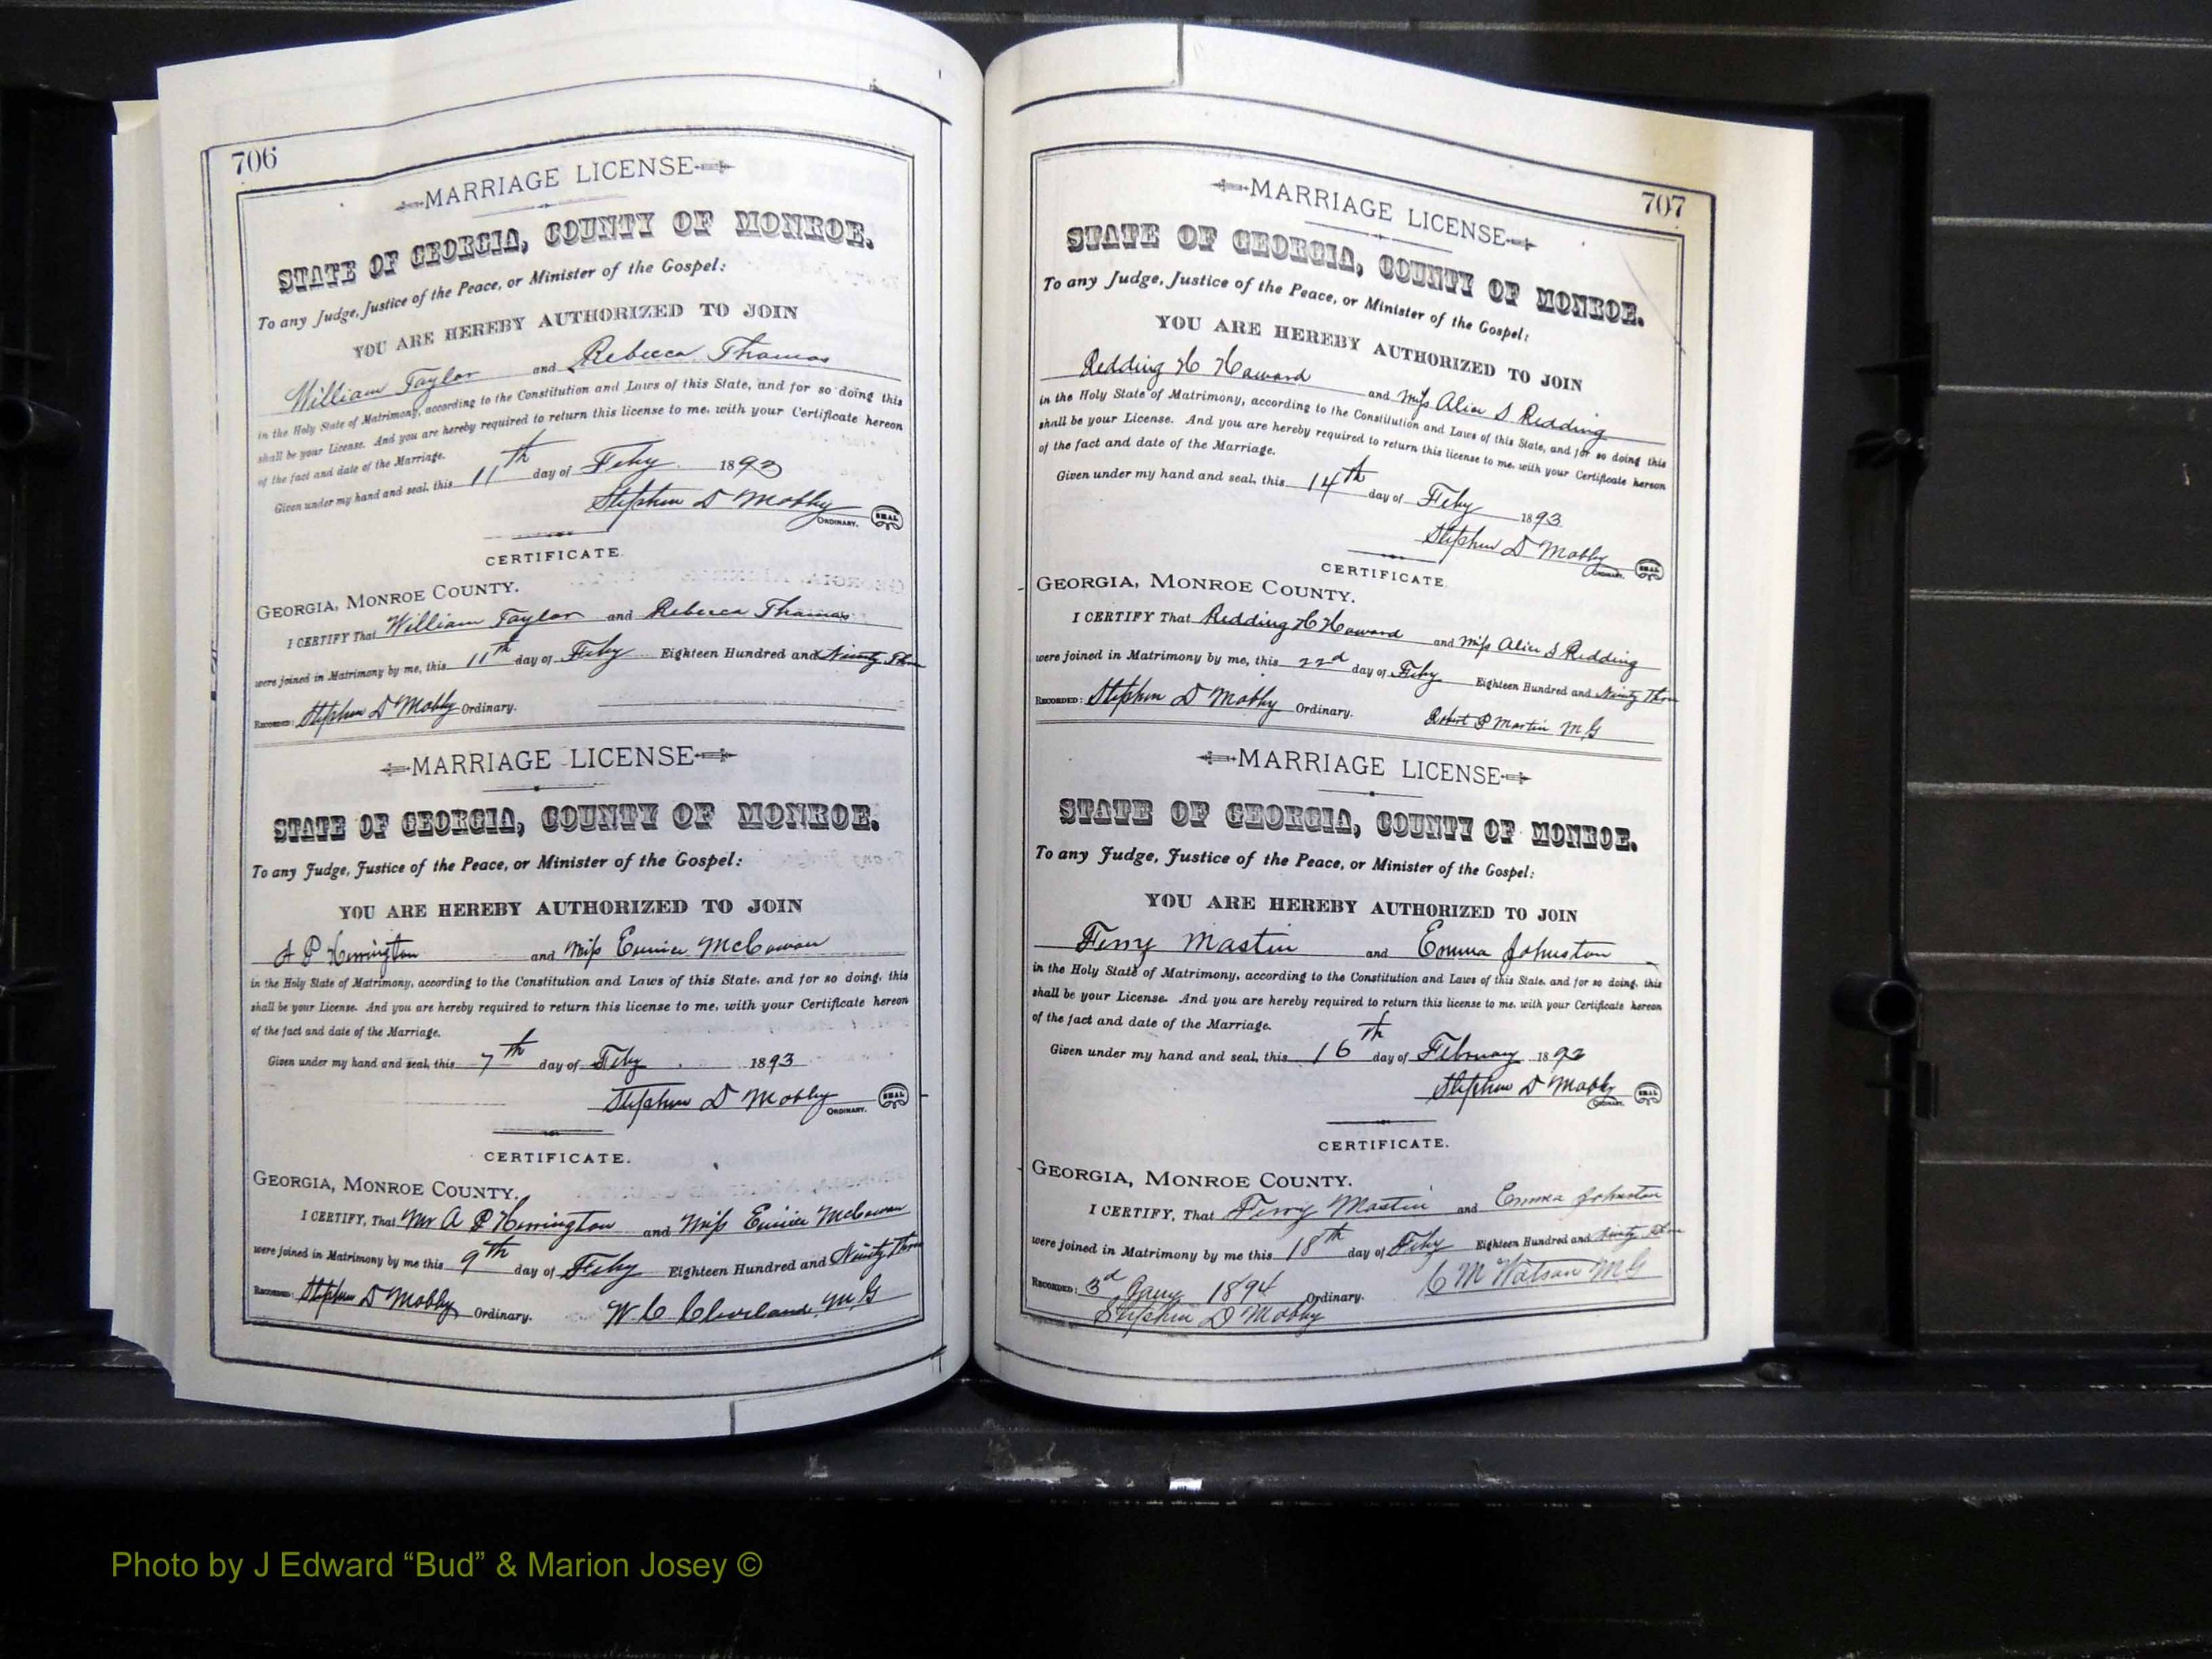 706
MARRIAGE LICENSE
STATE OF GEORGIA, COUNTY OF MONROE.
To any Judge, Justice of the Peace, or Minister of the Gospel:
YOU ARE HEREBY AUTHORIZED TO JOIN
William Taylor and Rebecca Thomas
in the Holy State of Matrimony, according to the Constitution and Laws of this State, and for so doing this
shall be your License. And you are hereby required to return this license to me, with your Certificate hereon
of the fact and date of the Marriage.
Given under my hand and seal, this 11th day of Feby. 1893
Stephen D Mobley
ORDINARY. SEAL
CERTIFICATE.
GEORGIA, MONROE COUNTY.
I CERTIFY That William Taylor and Rebecca Thomas
were joined in Matrimony by me, this 11th day of Feby Eighteen Hundred and Ninety Three
RECORDED: Stephen D Mobley Ordinary.
MARRIAGE LICENSE
STATE OF GEORGIA, COUNTY OF MONROE.
To any Judge, Justice of the Peace, or Minister of the Gospel:
YOU ARE HEREBY AUTHORIZED TO JOIN
A P Herrington and Miss Eunice McCowan
in the Holy State of Matrimony, according to the Constitution and Laws of this State, and for so doing, this
shall be your License. And you are hereby required to return this license to me, with your Certificate hereon
of the fact and date of the Marriage.
Given under my hand and seal, this 7th day of Feby 1893
Stephen D Mobley
ORDINARY. SEAL
CERTIFICATE.
GEORGIA, MONROE COUNTY.
I CERTIFY, That Mr A P Herrington and Miss Eunice McCowan
were joined in Matrimony by me this 9th day of Feby Eighteen Hundred and Ninety Three
RECORDED: Stephen D Mobley Ordinary. W. C Cleveland M.G
707
MARRIAGE LICENSE
STATE OF GEORGIA, COUNTY OF MONROE.
To any Judge, Justice of the Peace, or Minister of the Gospel:
YOU ARE HEREBY AUTHORIZED TO JOIN
Redding H Howard and Miss Alice S Redding
in the Holy State of Matrimony, according to the Constitution and Laws of this State, and for so doing this
shall be your License. And you are hereby required to return this license to me, with your Certificate hereon
of the fact and date of the Marriage.
Given under my hand and seal, this 14th day of Feby 1893
Stephen D Mobley
ORDINARY. SEAL
CERTIFICATE
GEORGIA, MONROE COUNTY.
I CERTIFY That Redding H Howard and Miss Alice S Redding
were joined in Matrimony by me, this 22d day of Feby Eighteen Hundred and Ninety Three
RECORDED: Stephen D Mobley Ordinary. Robert P Martin M G
MARRIAGE LICENSE
STATE OF GEORGIA, COUNTY OF MONROE.
To any Judge, Justice of the Peace, or Minister of the Gospel:
YOU ARE HEREBY AUTHORIZED TO JOIN
Terry Mastin and Emma Johnston
in the Holy State of Matrimony, according to the Constitution and Laws of this State, and for so doing, this
shall be your License. And you are hereby required to return this license to me, with your Certificate hereon
of the fact and date of the Marriage.
Given under my hand and seal, this 16th day of February 1893
Stephen D Mobley
ORDINARY. SEAL
CERTIFICATE.
GEORGIA, MONROE COUNTY.
I CERTIFY, That Terry Mastin and Emma Johnston
were joined in Matrimony by me this 18th day of Feby Eighteen Hundred and Ninety Three
C M Watson M G
RECORDED: 3d Jany 1894 Ordinary.
Stephen D Mobley
Photo by J Edward “Bud” & Marion Josey ©